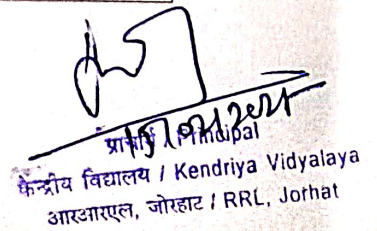 प्राचार्य / Principal
केन्द्रीय विद्यालय / Kendriya Vidyalaya
आरआरएल, जोरहाट / RRL, Jorhat